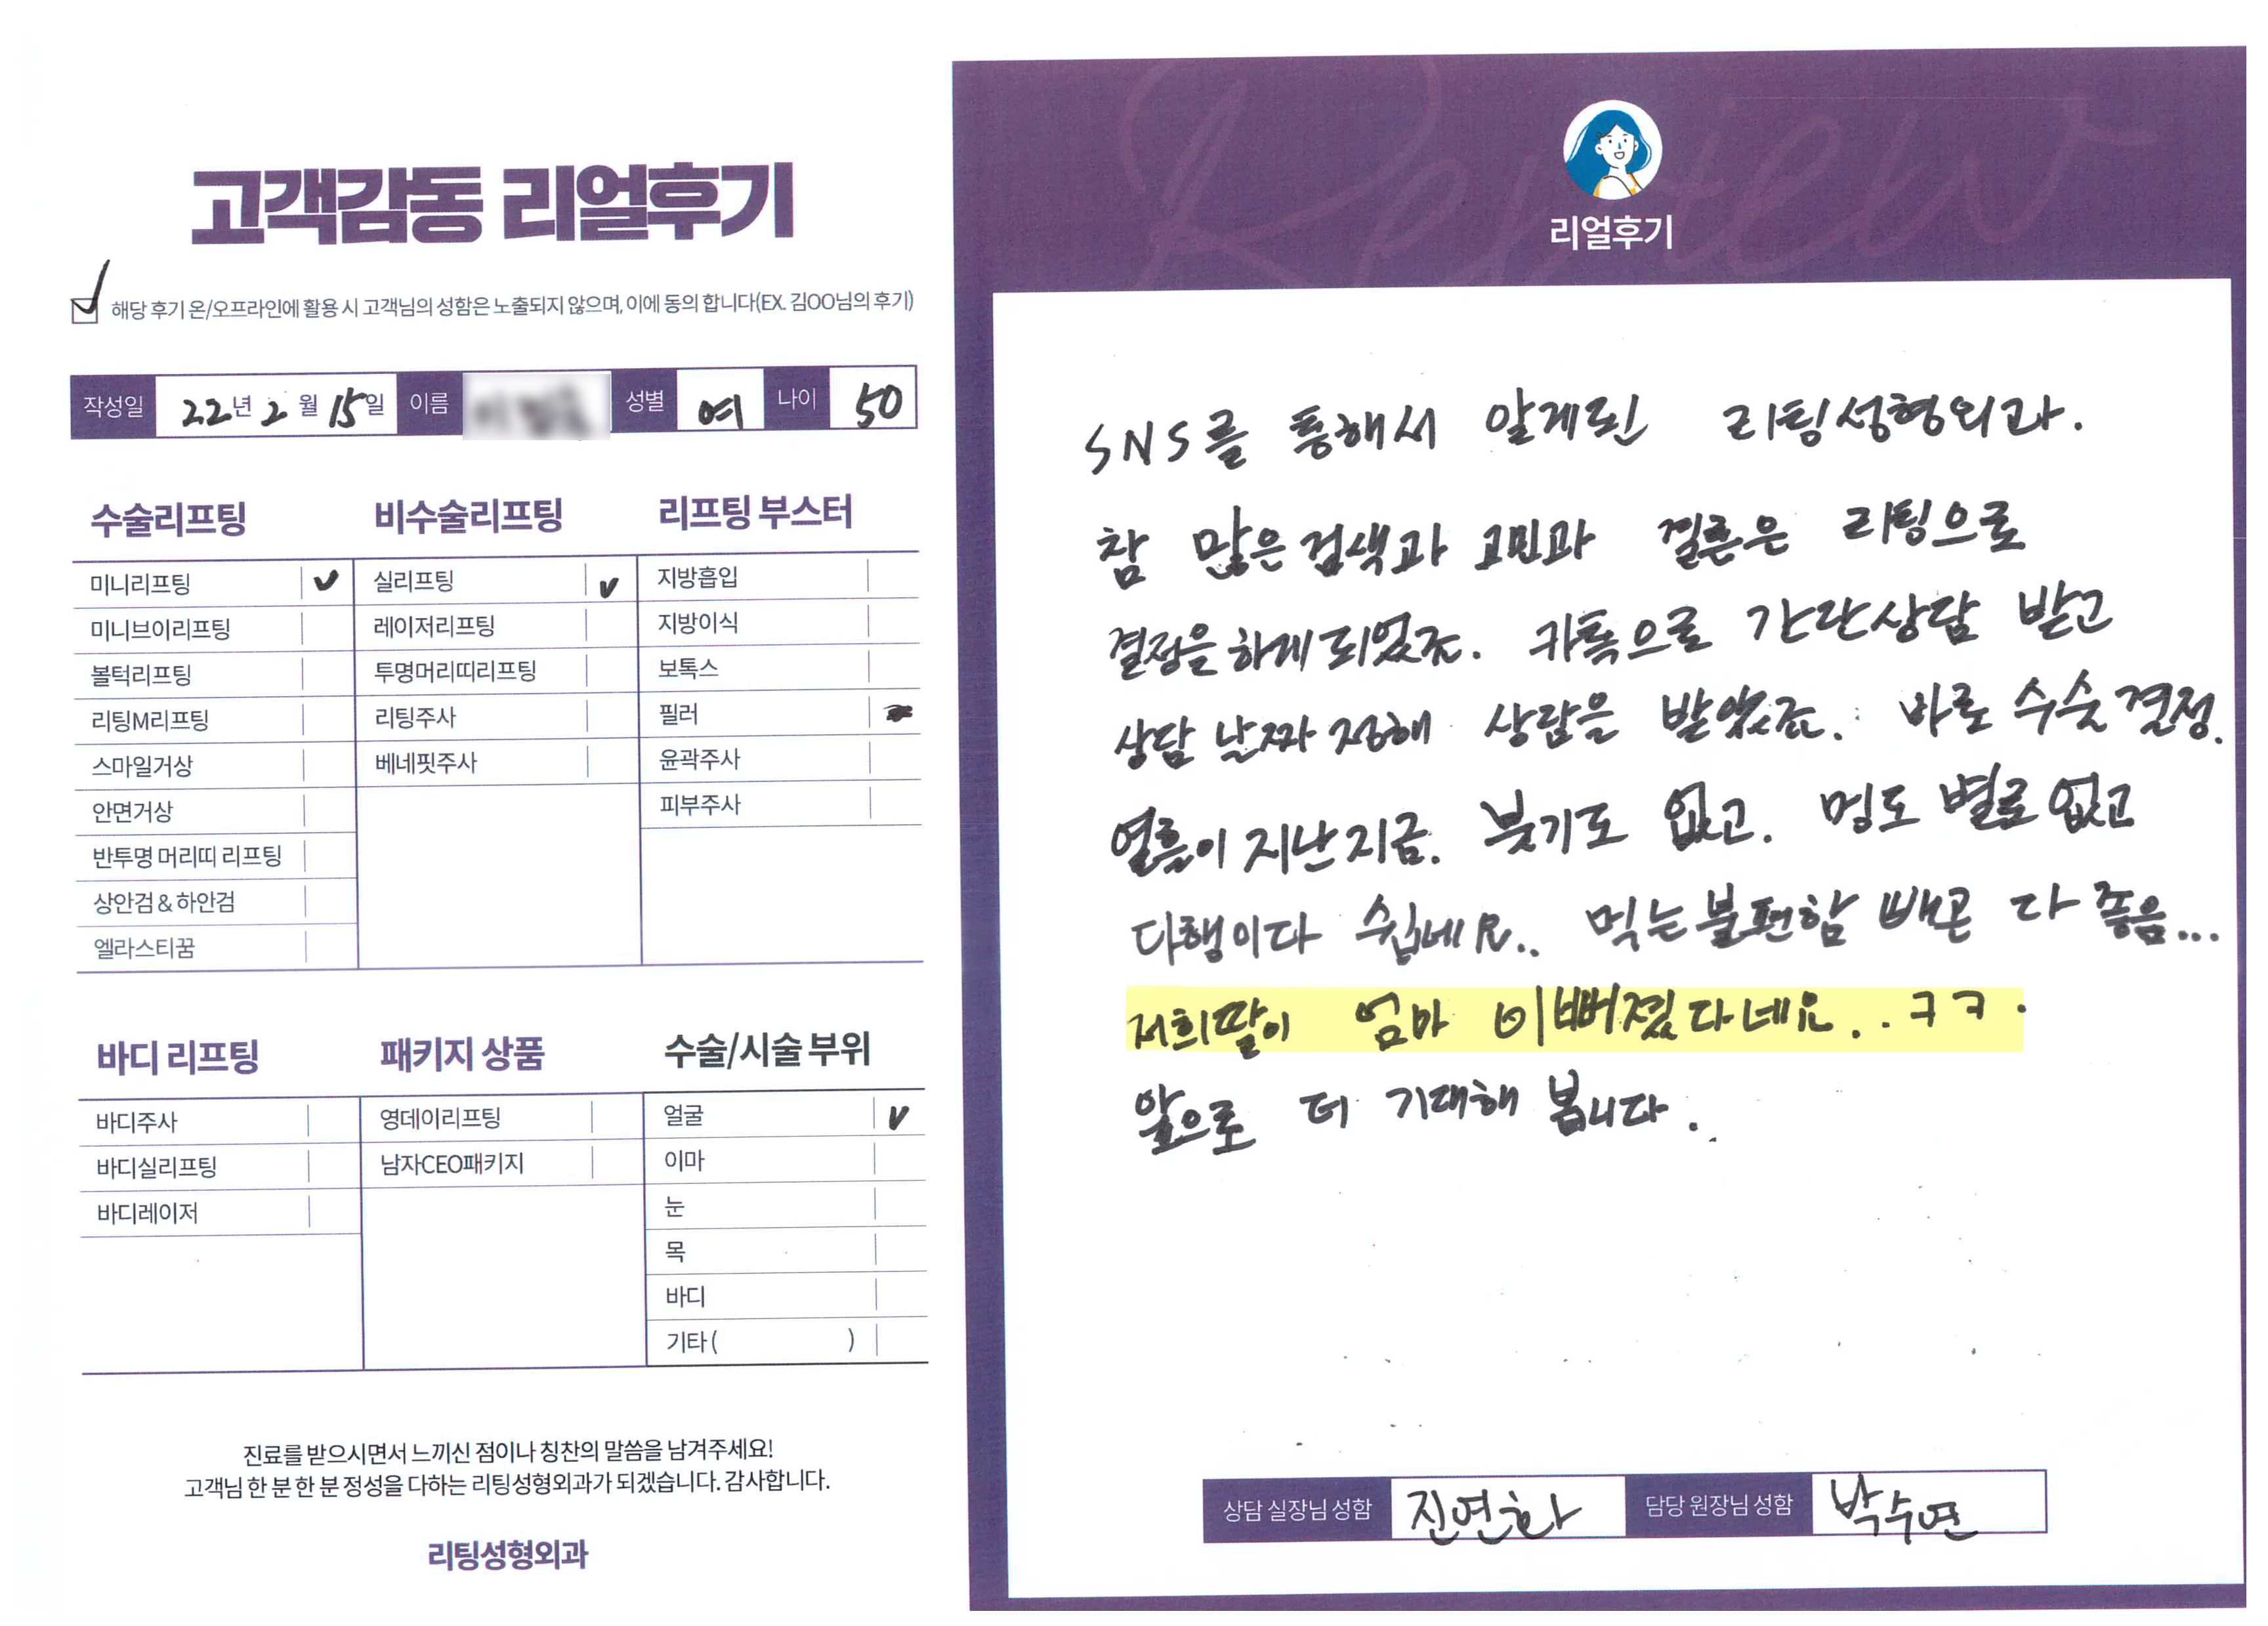 고객감동 리얼후기
해당 후기 온/오프라인에 활용 시 고객님의 성함은 노출되지 않으며, 이에 동의 합니다(EX. 김OO님의 후기)
작성일 22년 2월 15일 이름 성별 여 나이 50
수술리프팅
미니리프팅
미니브이리프팅
볼턱리프팅
리팅M리프팅
스마일거상
안면거상
반투명 머리띠 리프팅
상안검 & 하안검
엘라스티꿈
비수술리프팅
실리프팅
레이저리프팅
투명머리띠리프팅
리팅주사
베네핏주사
리프팅 부스터
지방흡입
지방이식
보톡스
필러
윤곽주사
피부주사
바디 리프팅
바디주사
바디실리프팅
바디레이저
패키지 상품
영데이리프팅
남자CEO패키지
수술/시술 부위
얼굴
이마
눈
목
바디
기타 ( )
진료를 받으시면서 느끼신 점이나 칭찬의 말씀을 남겨주세요!
고객님 한 분 한 분 정성을 다하는 리팅성형외과가 되겠습니다. 감사합니다.
리팅성형외과
Review
리얼후기
SNS를 통해서 알게된 리팅성형외과.
참 많은 검색과 고민과 결론은 리팅으로
결정을 하게 되었죠. 카톡으로 간단상담 받고
상담 날짜 정해 상담을 받았죠. 바로 수술 결정.
열흘이 지난 지금. 붓기도 없고. 멍도 별로 없고
다행이다 싶네요.. 먹는 불편함 빼곤 다 좋음...
저희딸이 엄마 이뻐졌다네요.. ㅋㅋ.
앞으로 더 기대해 봅니다.
상담 실장님 성함 진연화 담당 원장님 성함 박수연